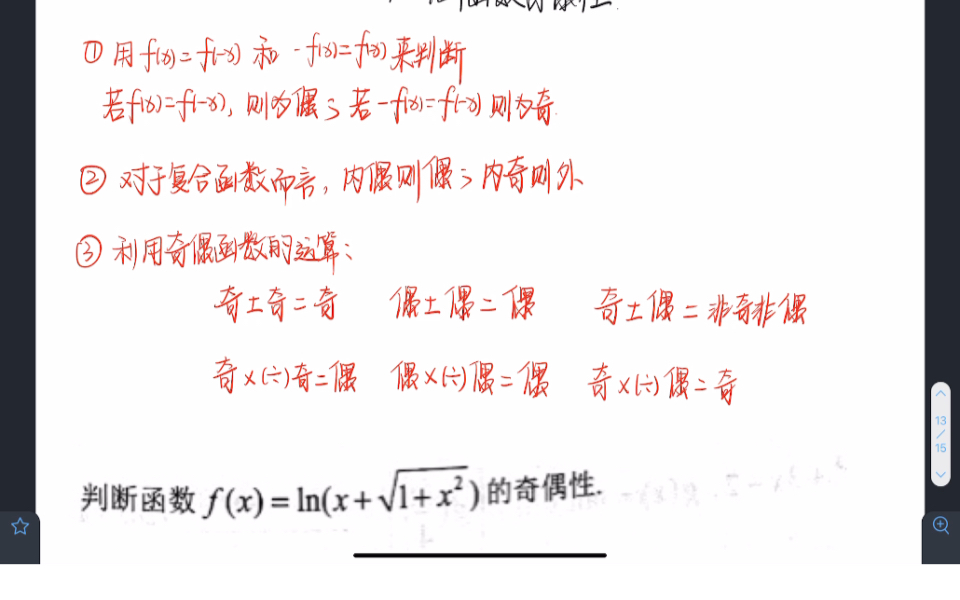 ① 用f(x)=f(-x) 和 -f(x)=f(-x) 来判断
若f(x)=f(-x), 则为偶; 若-f(x)=f(-x) 则为奇
② 对于复合函数而言, 内偶则偶; 内奇则外
③ 利用奇偶函数的运算:
奇±奇=奇 偶±偶=偶 奇±偶=非奇非偶
奇×(÷)奇=偶 偶×(÷)偶=偶 奇×(÷)偶=奇
判断函数 f(x)=ln(x+√(1+x²)) 的奇偶性.
13
/
15